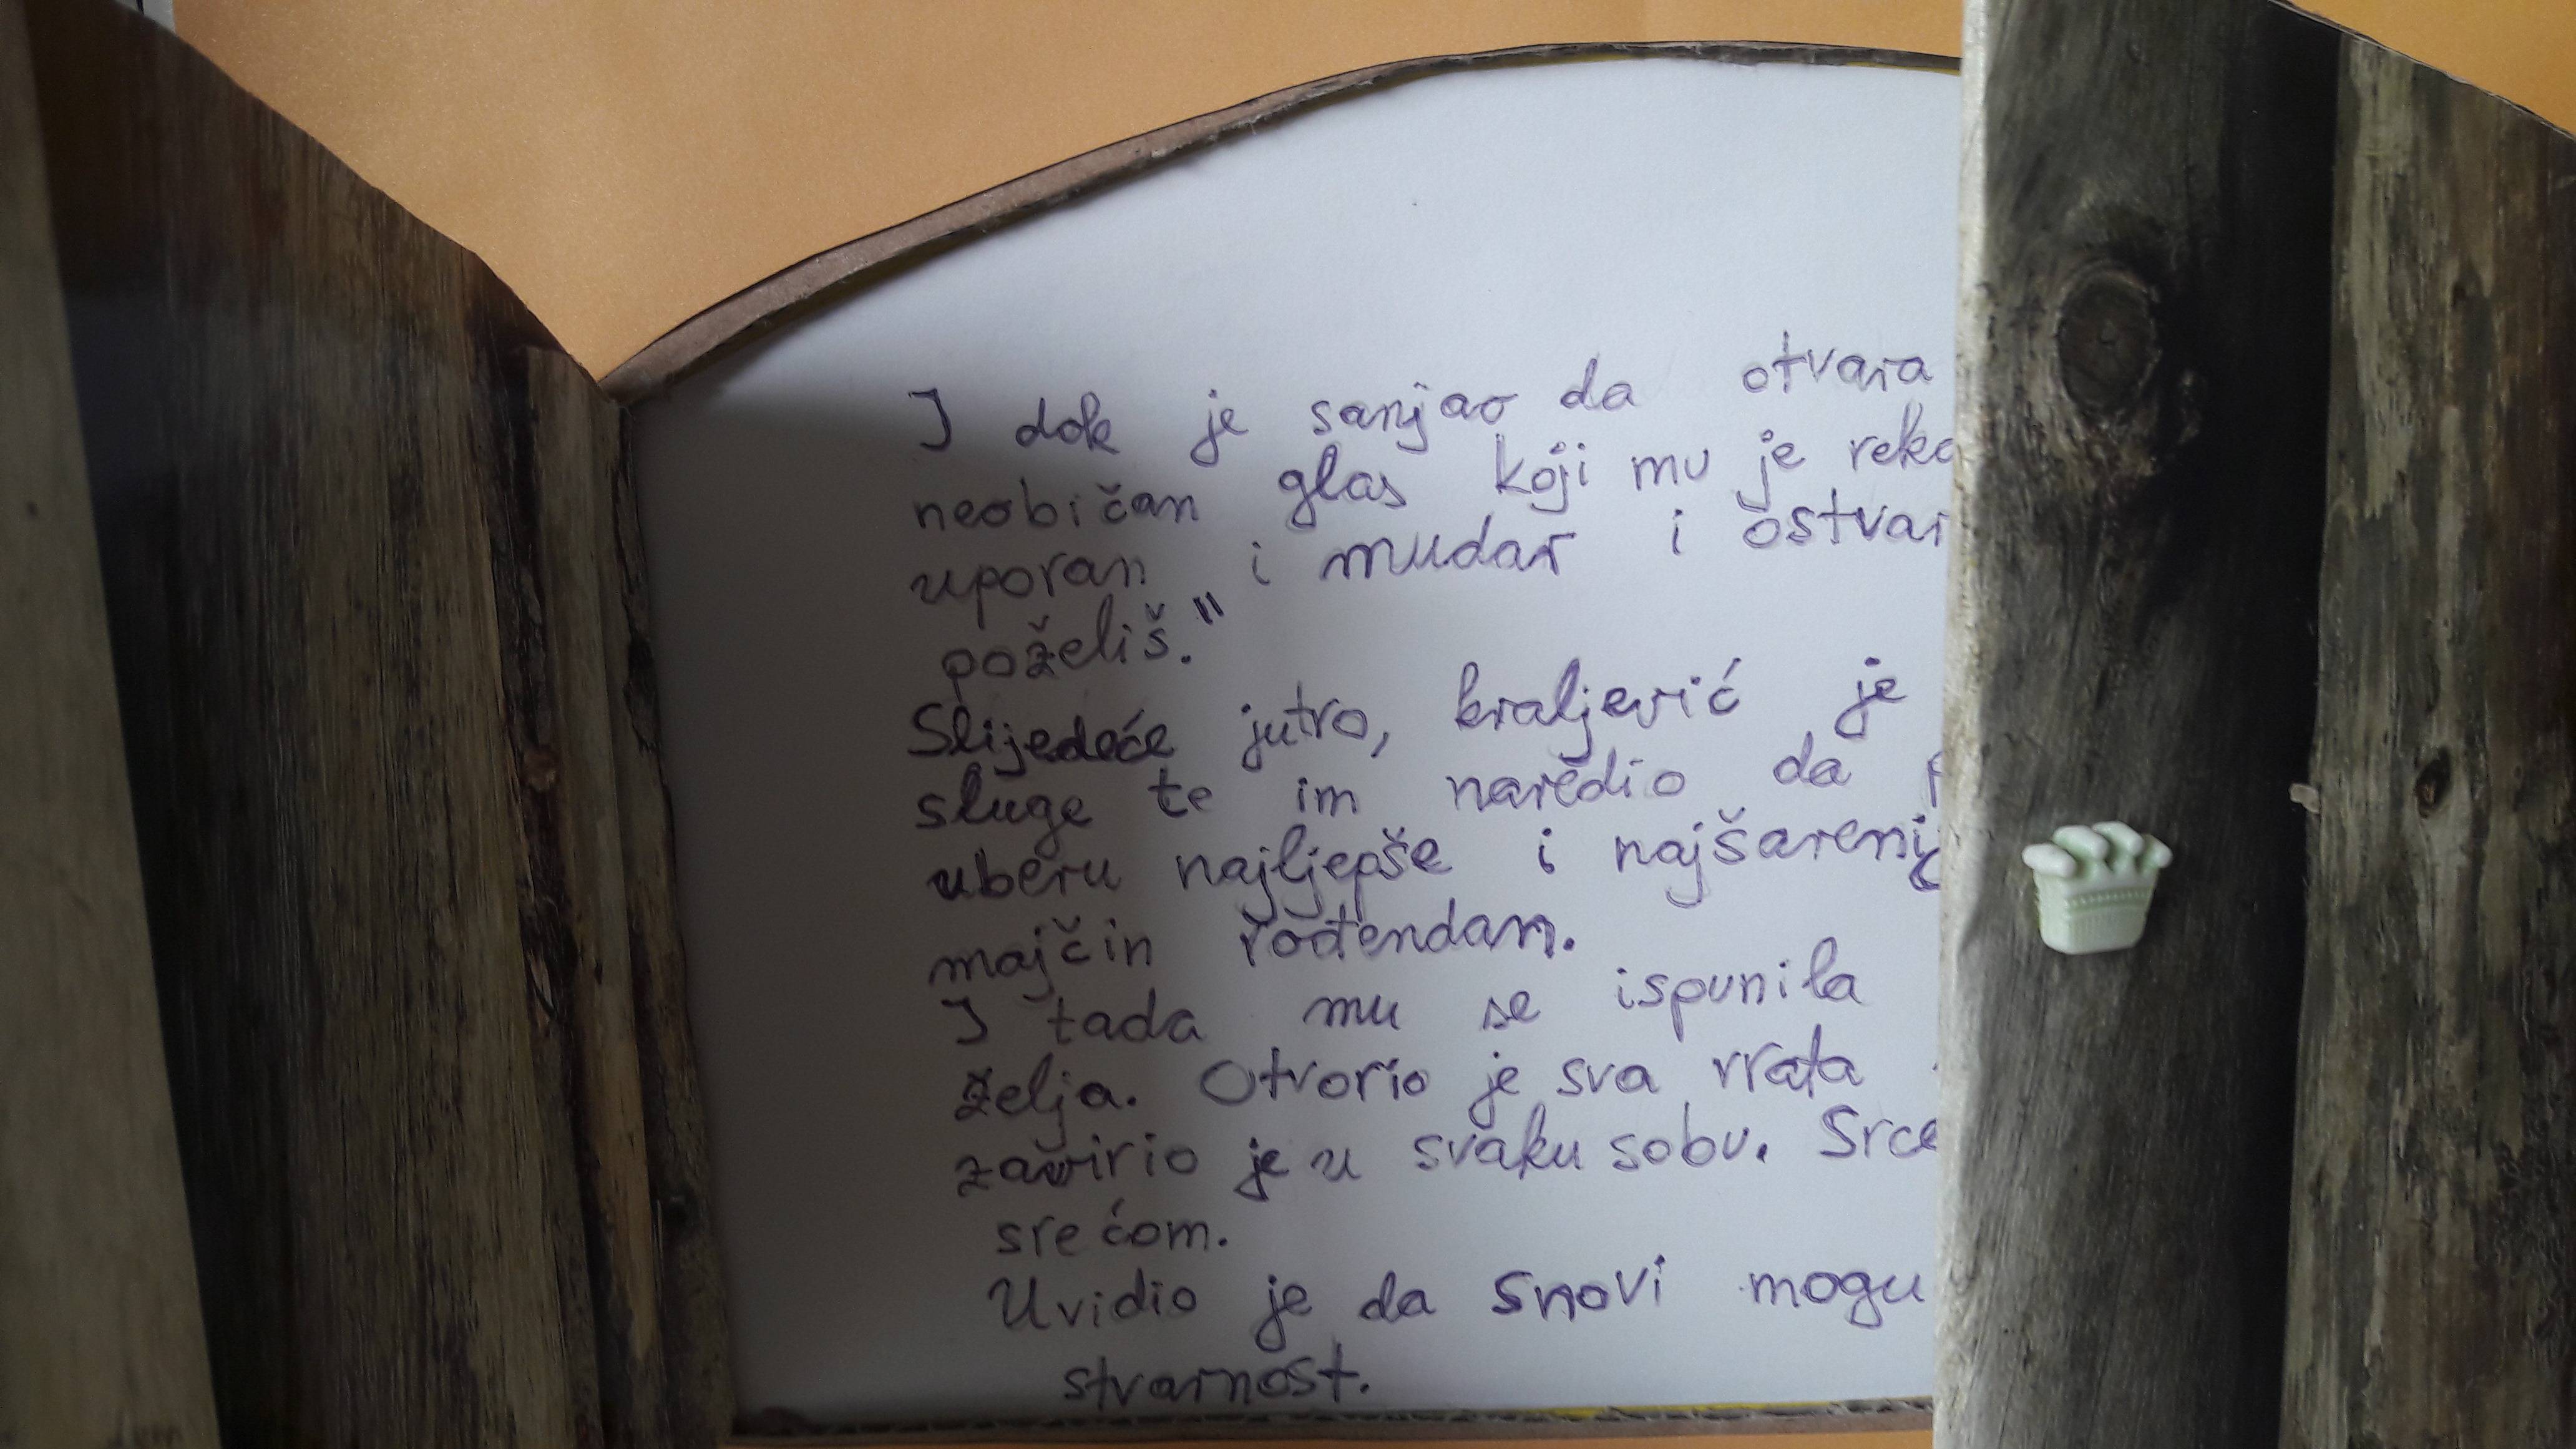 I dok je sanjao da otvara
neobičan glas koji mu je
uporan i mudar i
poželiš."
Slijedeće jutro, kraljević je
sluge te im naredio da
uberu najljepše i
majčin rođendan.
I tada mu se ispunila
želja. Otvorio je sva vrata
zavirio je u svaku sobu. Srce
srećom.
Uvidio je da snovi mogu
stvarnost.